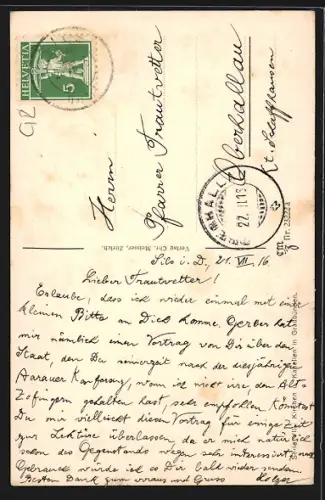 HELVETIA
5
Herrn
Pfarrer Trautvetter
Oberhallau
Kt. Schaffhausen
OBERHALLAU
22. VII. 16
Verlag Chr. Meisser, Zürich.
Nr. 23222 A
Kirchen & Kapellen in Graubünden.
Sils i. D., 21. VII. 16
Lieber Trautvetter!
Erlaube, dass ich wieder einmal mit einer
kleinen Bitte an Dich komme. Gerber hat
mir nämlich einen Vortrag von Dir über den
Staat, den Du seinerzeit nach der diesjährigen
Aarauer Konferenz, wenn ich nicht irre, den Alt-
Zofingern gehalten hast, sehr empfohlen. Könntest
Du mir vielleicht diesen Vortrag für einige Zeit
zur Lektüre überlassen, da er mich natürlich
schon des Gegenstands wegen sehr interessiert.
Gebrauch würde ich es Dir bald wieder senden.
Besten Dank zum voraus und Gruss